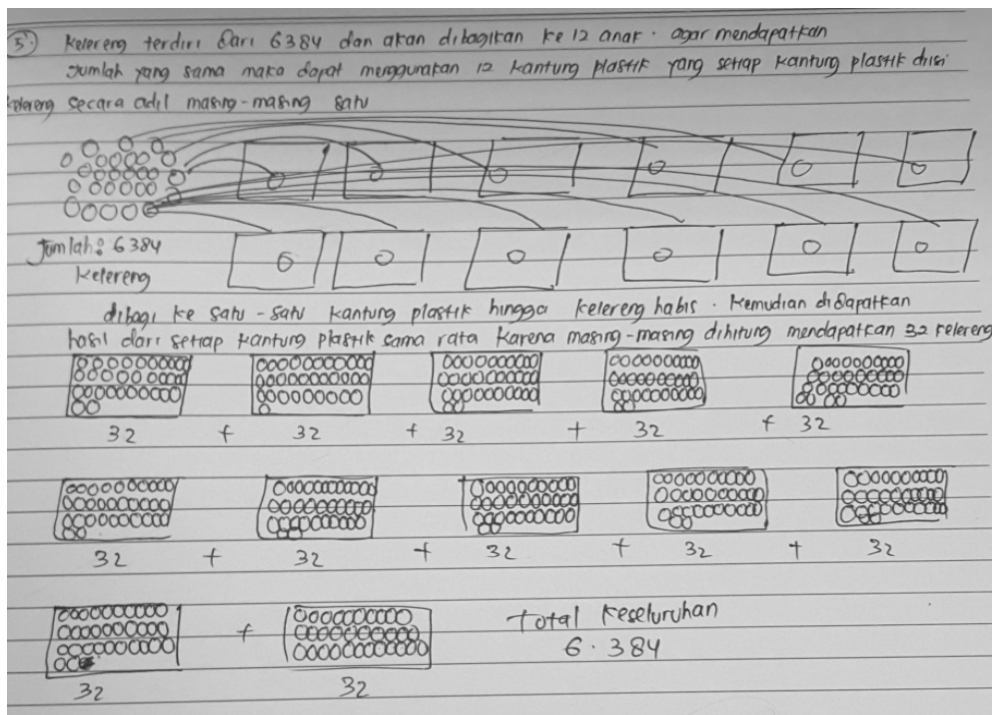 5. Kelereng terdiri dari 6384 dan akan dibagikan ke 12 anak. agar mendapatkan
Jumlah yang sama maka dapat menggunakan 12 kantung plastik yang setiap kantung plastik diisi
kelereng secara adil masing-masing satu
Jumlah: 6384
Kelereng
dibagi ke satu-satu kantung plastik hingga kelereng habis. Kemudian didapatkan
hasil dari setiap kantung plastik sama rata karena masing-masing dihitung mendapatkan 32 kelereng
32 + 32 + 32 + 32 + 32
32 + 32 + 32 + 32 + 32
+ Total keseluruhan
6.384
32 32